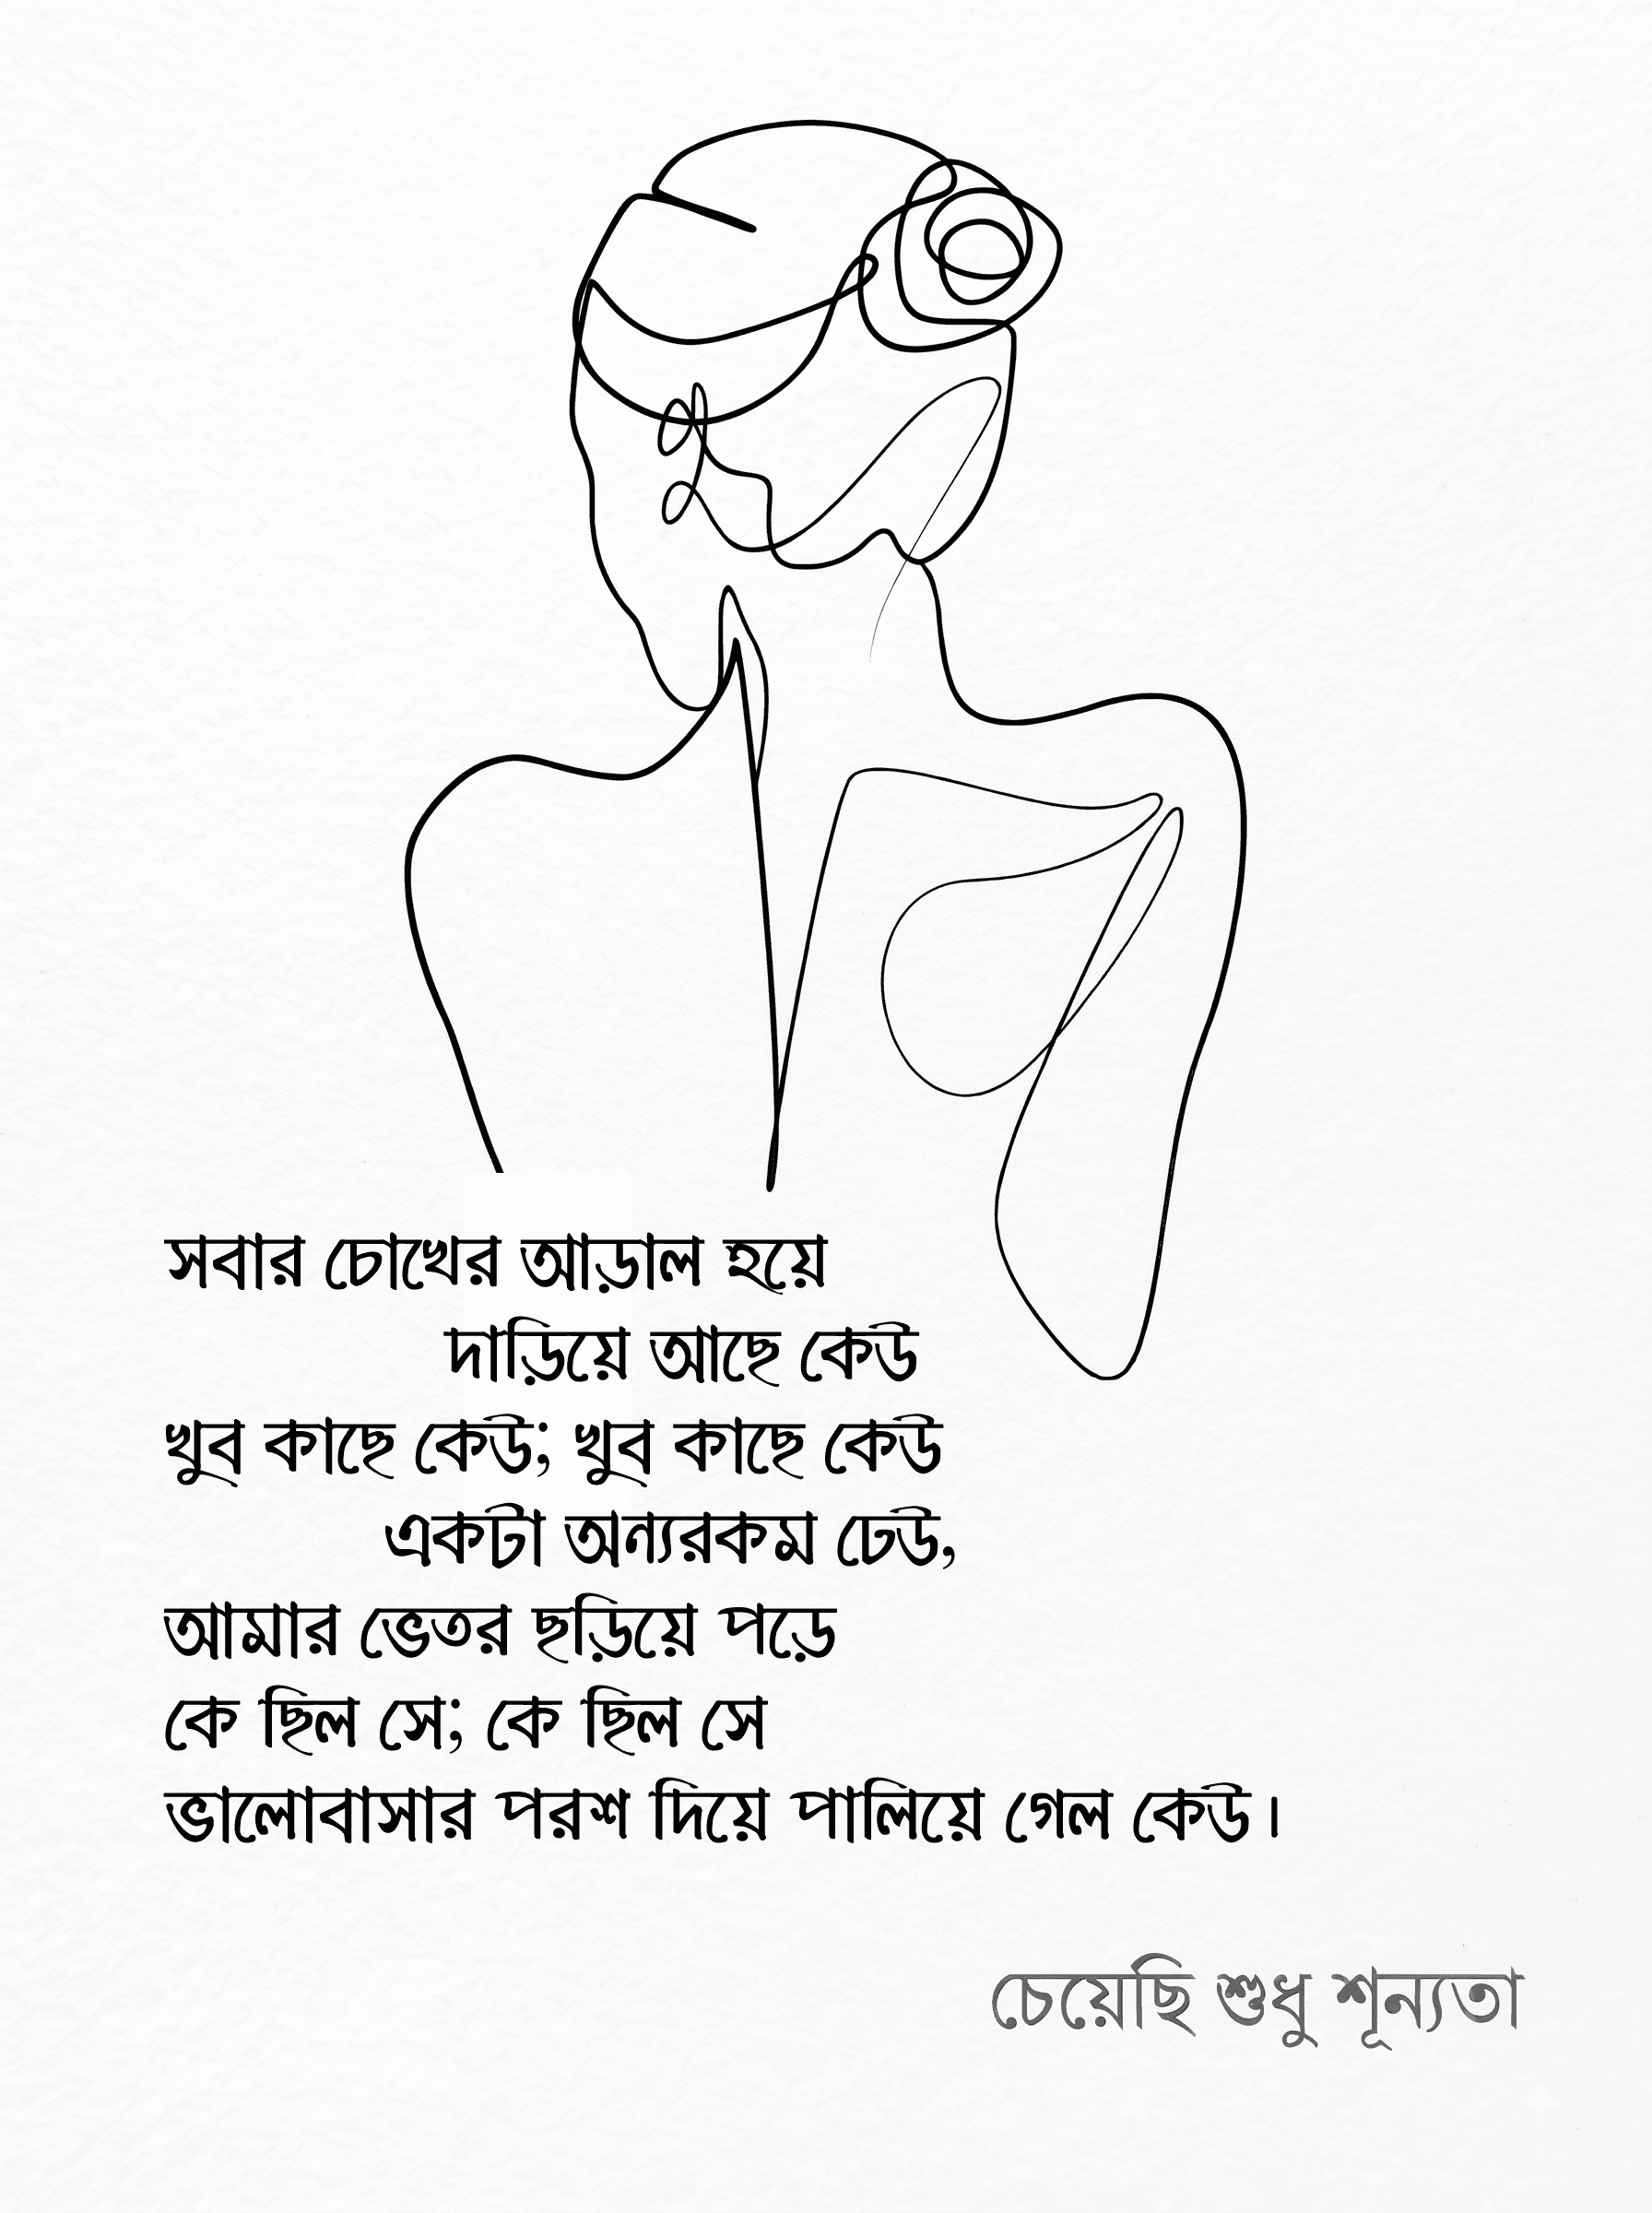 সবার চোখের আড়াল হয়ে
দাড়িয়ে আছে কেউ
খুব কাছে কেউ; খুব কাছে কেউ
একটা অন্যরকম ঢেউ,
আমার ভেতর ছড়িয়ে পড়ে
কে ছিল সে; কে ছিল সে
ভালোবাসার পরশ দিয়ে পালিয়ে গেল কেউ।
চেয়েছি শুধু শূন্যতা